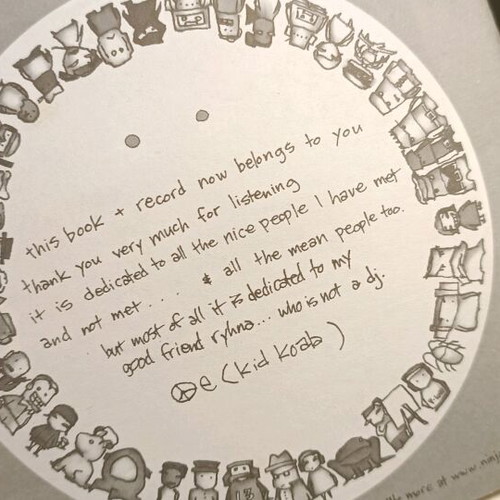 this book + record now belongs to you
thank you very much for listening
it is dedicated to all the nice people I have met
and not met... & all the mean people too.
but most of all it is dedicated to my
good friend ryhna... who is not a dj.
☮e (kid koala)
more at www.ninj